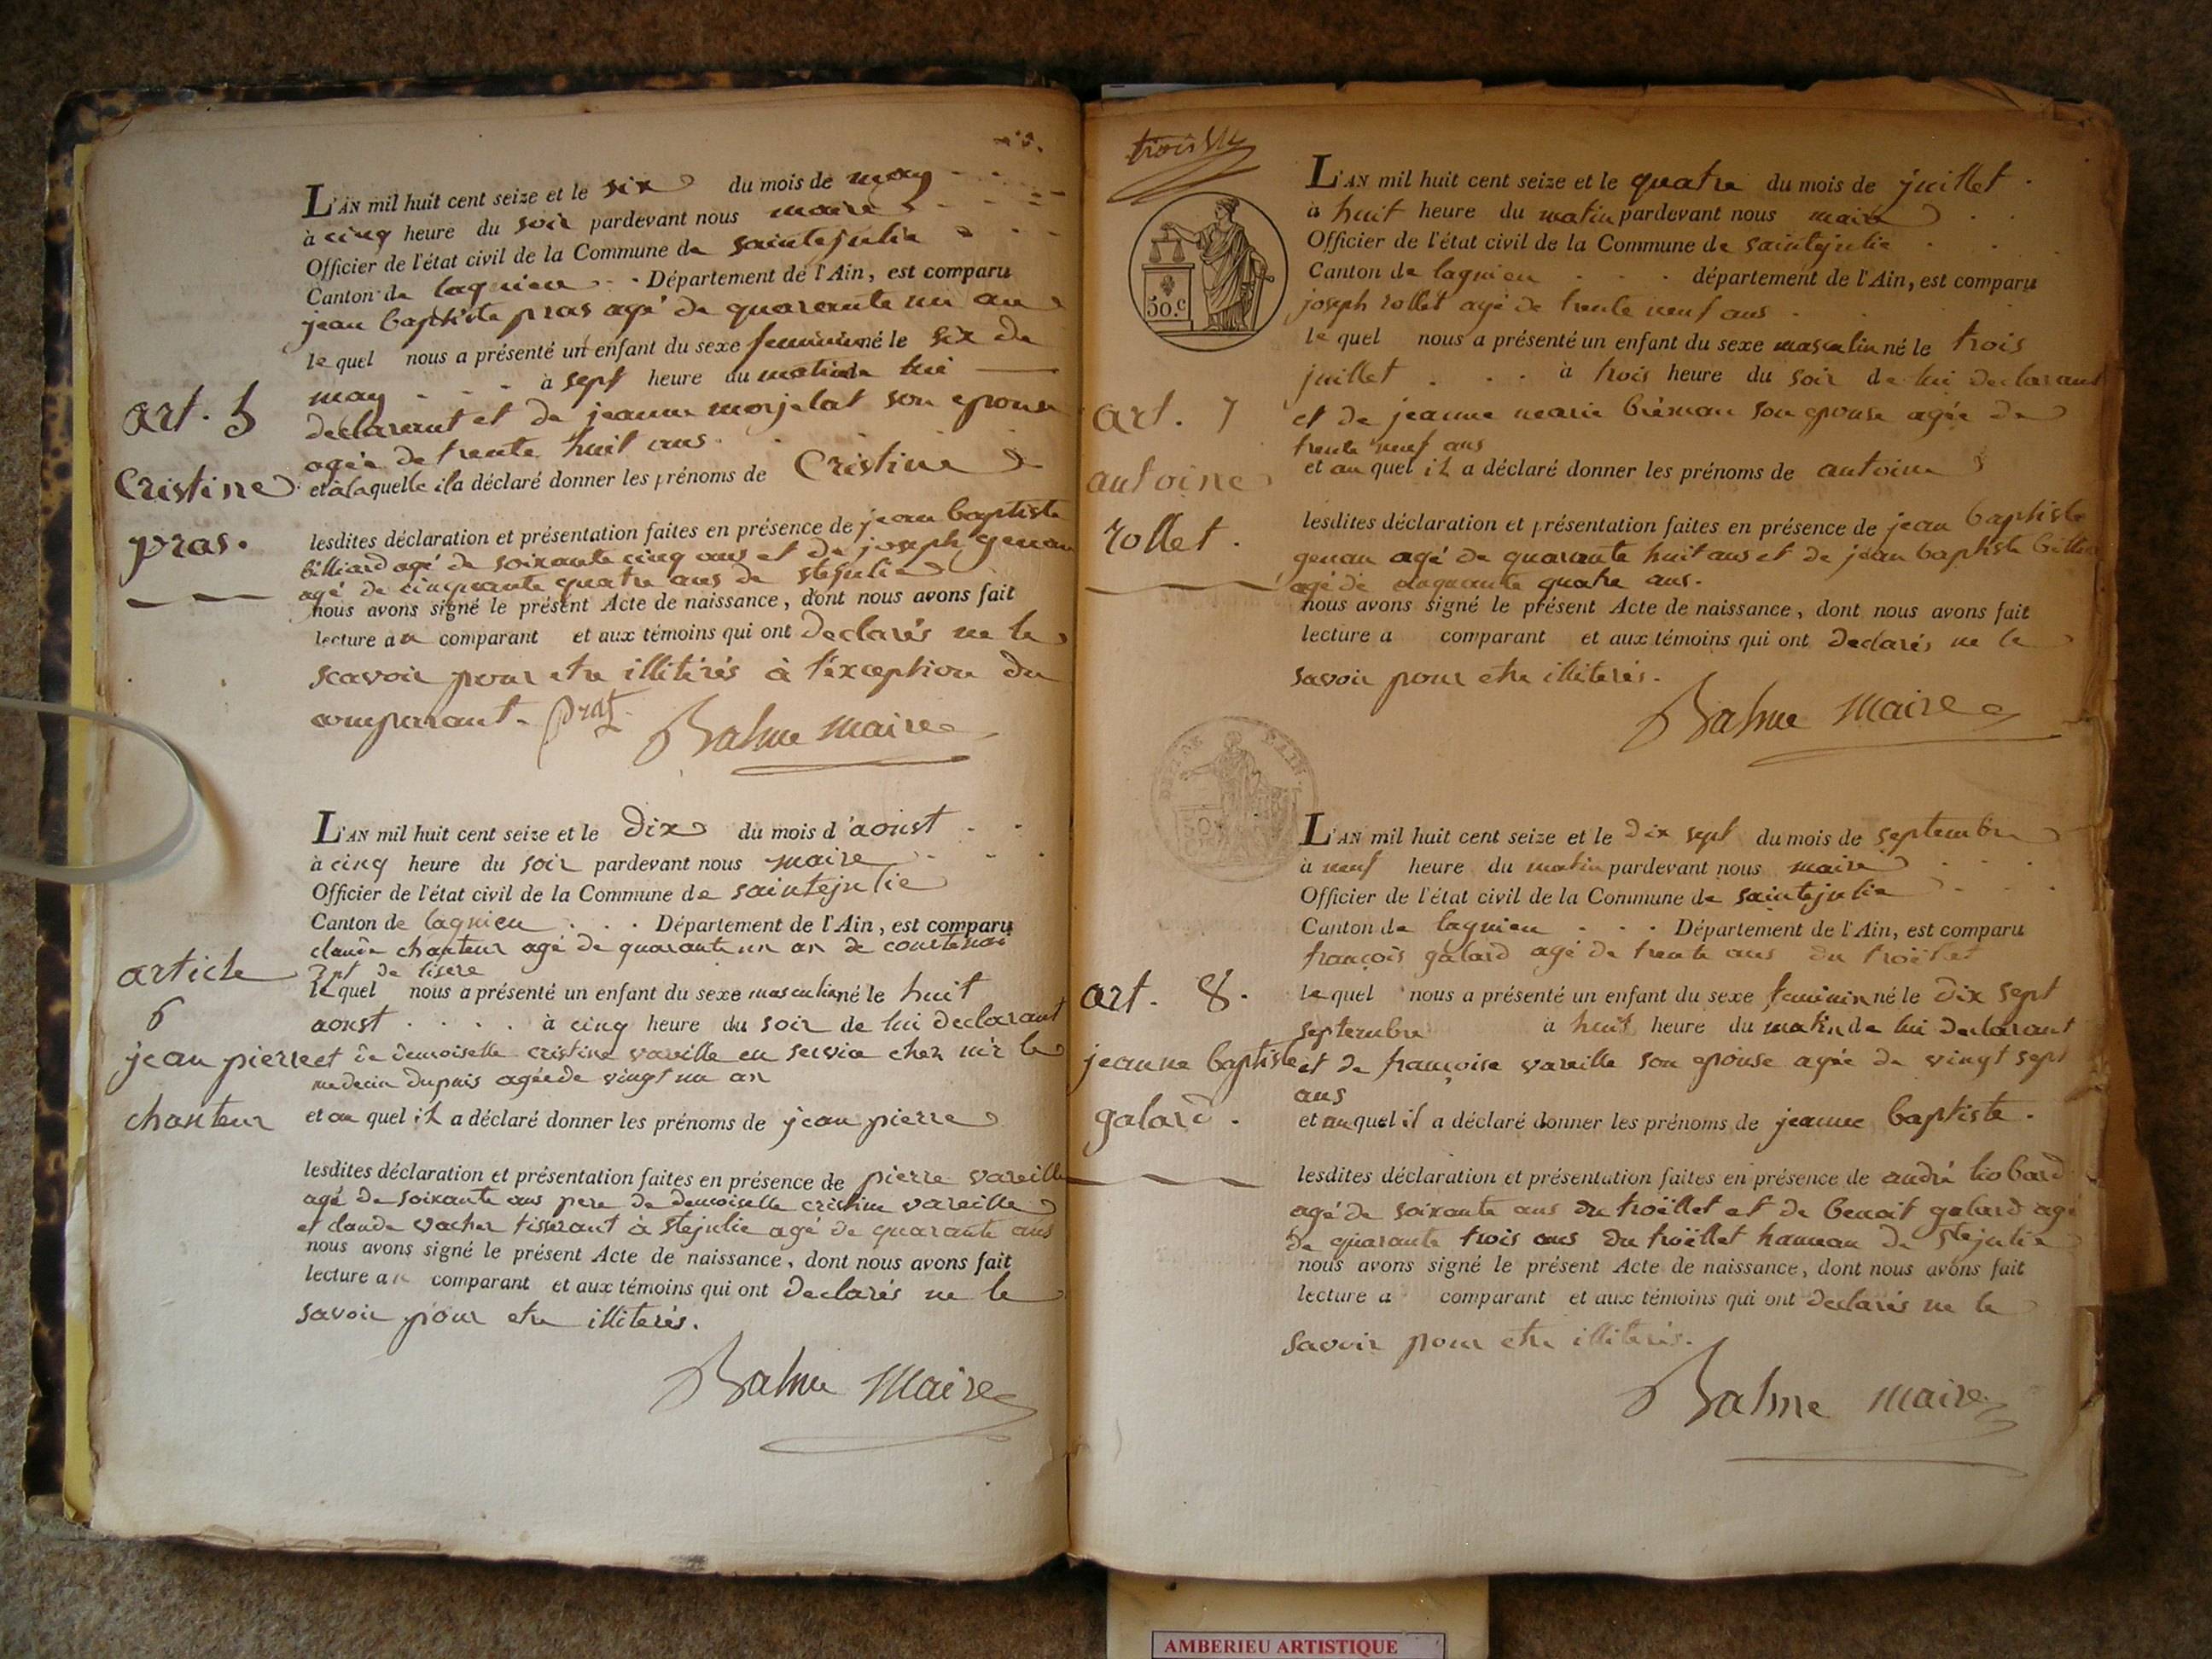 L'AN mil huit cent seize et le six du mois de may
à cinq heure du soir pardevant nous maire
Officier de l'état civil de la Commune de saintejulie
Canton de lagnieu Département de l'Ain, est comparu
jean baptiste pras agé de quarante un an
le quel nous a présenté un enfant du sexe feminin né le six de
may à sept heure du matin de lui
declarant et de jeanne morjelat son epouse
agée de trente huit ans.
et à laquelle il a déclaré donner les prénoms de Cristine
lesdites déclaration et présentation faites en présence de jean baptiste
billiard agé de soixante cinq ans et de joseph genan
agé de cinquante quatre ans de stejulie
nous avons signé le présent Acte de naissance, dont nous avons fait
lecture au comparant et aux témoins qui ont declarés ne le
scavoir pour etre illitérés à l'éxception du
comparant. prat Balme maire
art. 5
Cristine
pras.
L'AN mil huit cent seize et le dix du mois d'aoust
à cinq heure du soir pardevant nous maire
Officier de l'état civil de la Commune de saintejulie
Canton de lagnieu Département de l'Ain, est comparu
claude chanteur agé de quarante un an de courtenai
dpt de lisere
le quel nous a présenté un enfant du sexe masculin né le huit
aoust à cinq heure du soir de lui declarant
et de demoiselle cristine vareille en service chez mr le
medecin dupuis agée de vingt un an
et au quel il a déclaré donner les prénoms de jean pierre
lesdites déclaration et présentation faites en présence de pierre vareille
agé de soixante ans pere de demoiselle cristine vareille
et claude vacher tisserant à stejulie agé de quarante ans
nous avons signé le présent Acte de naissance, dont nous avons fait
lecture au comparant et aux témoins qui ont declarés ne le
savoir pour etre illiterés.
Balme Maire
article
6
jean pierre
chanteur
trois
50.c
L'AN mil huit cent seize et le quatre du mois de juillet
à huit heure du matin pardevant nous maire
Officier de l'état civil de la Commune de saintejulie
Canton de lagnieu département de l'Ain, est comparu
joseph rollet agé de trente neuf ans
le quel nous a présenté un enfant du sexe masculin né le trois
juillet à trois heure du soir de lui declarant
et de jeanne marie bréman son epouse agée de
trente neuf ans
et au quel il a déclaré donner les prénoms de antoine
lesdites déclaration et présentation faites en présence de jean baptiste
genan agé de quarante huit ans et de jean baptiste
agé de cinquante quatre ans.
nous avons signé le présent Acte de naissance, dont nous avons fait
lecture a comparant et aux témoins qui ont declarés ne le
savoir pour etre illiterés.
Balme Maire
art. 7
antoine
rollet.
L'AN mil huit cent seize et le dix sept du mois de septembre
à neuf heure du matin pardevant nous maire
Officier de l'état civil de la Commune de saintejulie
Canton de lagnieu Département de l'Ain, est comparu
françois galard agé de trente ans du troëllet
le quel nous a présenté un enfant du sexe feminin né le dix sept
septembre à huit heure du matin de lui declarant
et de françoise vareille son epouse agée de vingt sept
ans
et au quel il a déclaré donner les prénoms de jeanne baptiste.
lesdites déclaration et présentation faites en présence de andré liobard
agé de soixante ans du troëllet et de benoit galard agé
de quarante trois ans du troëllet hameau de stejulie
nous avons signé le présent Acte de naissance, dont nous avons fait
lecture a comparant et aux témoins qui ont declarés ne le
savoir pour etre illiterés.
Balme maire
art. 8.
jeanne baptiste
galard.
AMBERIEU ARTISTIQUE